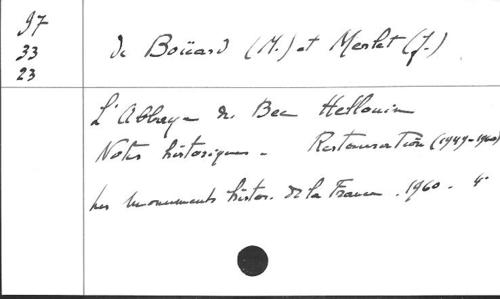 97
33
23
de Boüard (M.) et Merlet (J.)
L'Abbaye du Bec Hellouin
Notes historiques - Restauration (1949-1960)
Les Monuments histor. de la France. 1960. 4°